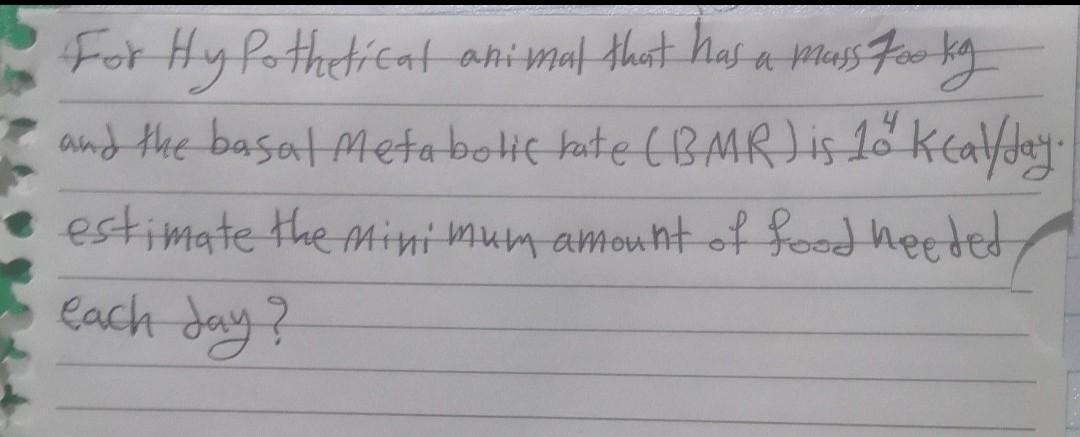 For Hypothetical animal that has a mass 700 kg
and the basal metabolic rate (BMR) is 10⁴ Kcal/day.
estimate the minimum amount of food needed
each day?